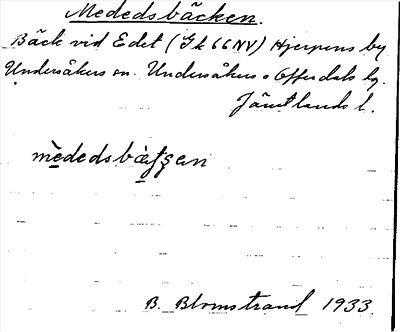 Mededsbäcken.
Bäck vid Edet (Gk 66 NV) Hjerpens by
Undersåkers sn. Undersåkers o Offerdals hg.
Jämtlands l.
B. Blomstrand 1933.